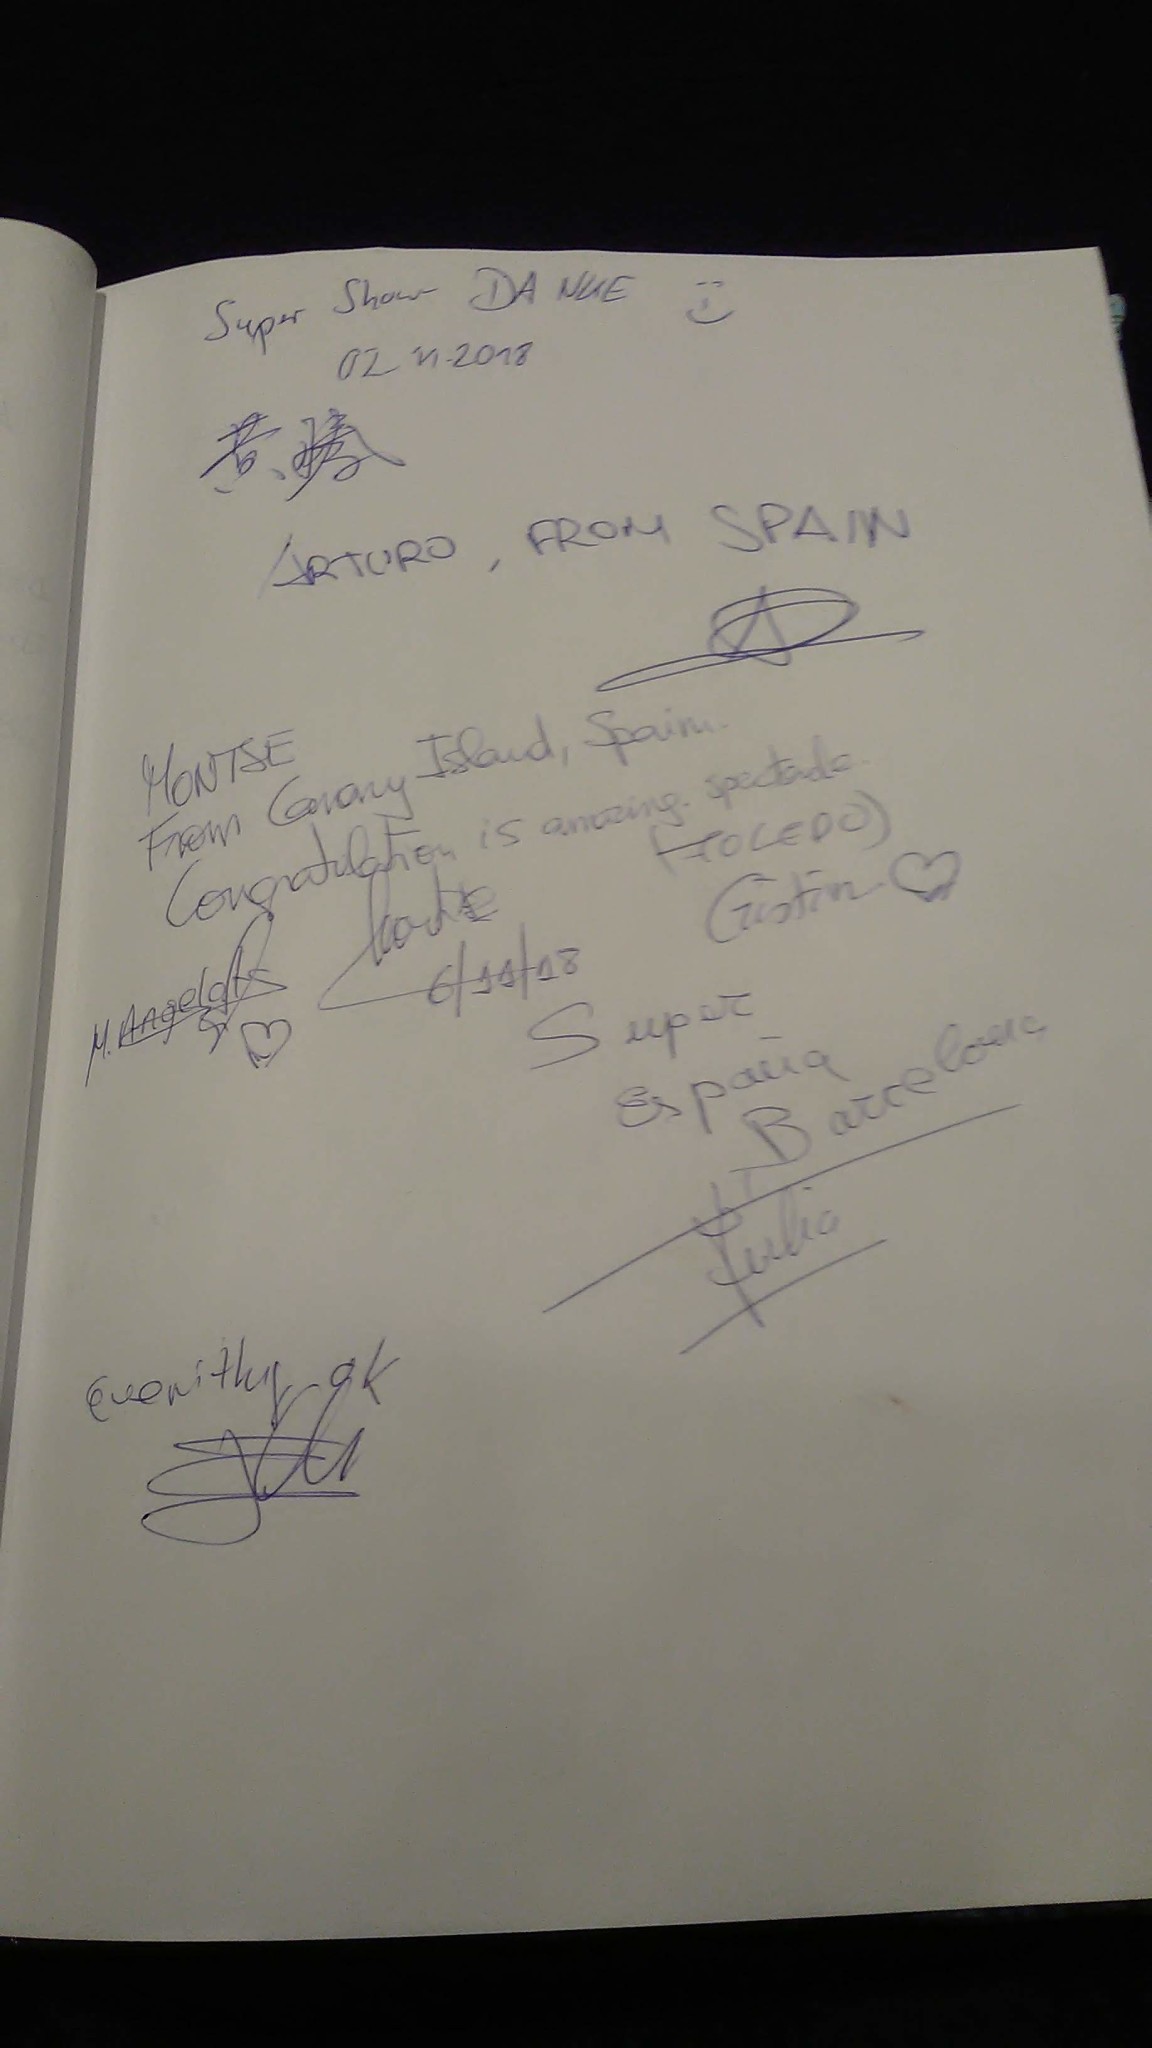 Super Show DANKE
02.11.2018
ARTURO, FROM SPAIN
MONTSE
From Canary Island, Spain.
Congratulation is amazing. spectacle.
(TOLEDO)
Cristina
Montse
6/11/18
M. Angeles
Super
España
Barcelona
Julia
Everithy ok